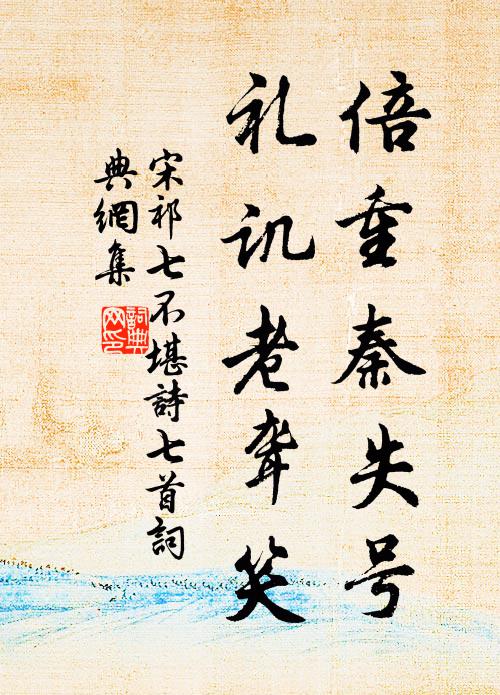 倍重秦失号
礼讥老聋笑
宋祁七不堪詩七首詞
典網集
詞典
网印